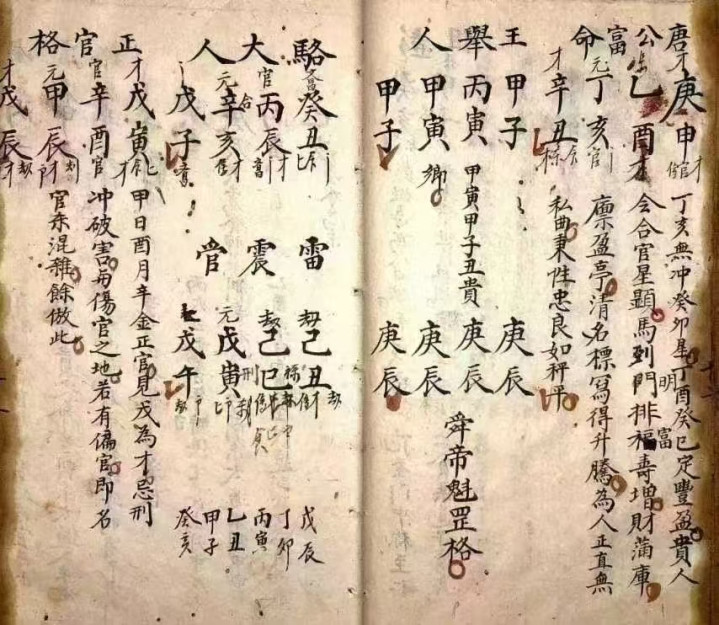 唐庚申
丁亥無冲癸卯星丁酉癸巳定豐盈貴人
公乙酉才
会合官星顯馬到門排福壽增財滿庫
富
明富
命元丁亥官
廪盈亭清名標寫得升騰為人正直無
才辛丑
私曲秉性忠良如秤平
王甲子
庚辰
舉丙寅
甲寅甲子丑貴
庚辰
人甲寅鄉
庚辰
甲子
庚辰
舜帝魁罡格
駱癸丑
雷己丑
大官丙辰
震己巳
人元辛亥
管元戊寅
戊子
戊午
戊辰
丁卯
丙寅
乙丑
甲子
癸亥
正才戊寅
甲日酉月辛金正官見戊為才忌刑
官官辛酉官
冲破害与傷官之地若有偏官即名
格元甲辰
官杀混雜餘倣此
才戊辰